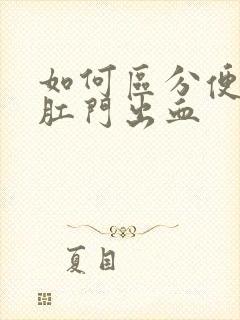 如何區分便
肛門出血
夏目